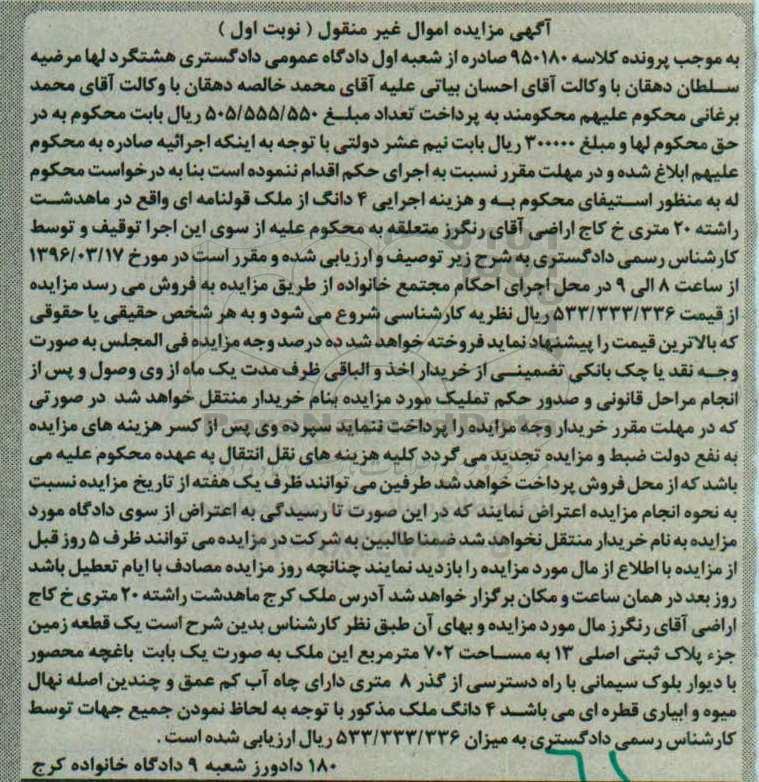 آگهی مزایده اموال غیر منقول ( نوبت اول )
به موجب پرونده کلاسه ۹۵۰۱۸۰ صادره از شعبه اول دادگاه عمومی دادگستری هشتگرد لها مرضیه
سلطان دهقان با وکالت آقای احسان بیاتی علیه آقای محمد خالصه دهقان با وکالت آقای محمد
برغانی محکوم علیهم محکومند به پرداخت تعداد مبلغ ۵۰۵/۵۵۵/۵۵۰ ریال بابت محکوم به در
حق محکوم لها و مبلغ ۳۰۰۰۰۰ ریال بابت نیم عشر دولتی با توجه به اینکه اجرائیه صادره به محکوم
علیهم ابلاغ شده و در مهلت مقرر نسبت به اجرای حکم اقدام ننموده است بنا به درخواست محکوم
له به منظور استیفای محکوم به و هزینه اجرایی ۴ دانگ از ملک قولنامه ای واقع در ماهدشت
راشته ۲۰ متری خ کاج اراضی آقای رنگرز متعلقه به محکوم علیه از سوی این اجرا توقیف و توسط
کارشناس رسمی دادگستری به شرح زیر توصیف و ارزیابی شده و مقرر است در مورخ ۱۳۹۶/۰۳/۱۷
از ساعت ۸ الی ۹ در محل اجرای احکام مجتمع خانواده از طریق مزایده به فروش می رسد مزایده
از قیمت ۵۳۳/۳۳۳/۳۳۶ ریال نظریه کارشناسی شروع می شود و به هر شخص حقیقی یا حقوقی
که بالاترین قیمت را پیشنهاد نماید فروخته خواهد شد ده درصد وجه مزایده فی المجلس به صورت
وجه نقد یا چک بانکی تضمینی از خریدار اخذ و الباقی ظرف مدت یک ماه از وی وصول و پس از
انجام مراحل قانونی و صدور حکم تملیک مورد مزایده بنام خریدار منتقل خواهد شد در صورتی
که در مهلت مقرر خریدار وجه مزایده را پرداخت ننماید سپرده وی پس از کسر هزینه های مزایده
به نفع دولت ضبط و مزایده تجدید می گردد کلیه هزینه های نقل انتقال به عهده محکوم علیه می
باشد که از محل فروش پرداخت خواهد شد طرفین می توانند ظرف یک هفته از تاریخ مزایده نسبت
به نحوه انجام مزایده اعتراض نمایند که در این صورت تا رسیدگی به اعتراض از سوی دادگاه مورد
مزایده به نام خریدار منتقل نخواهد شد ضمنا طالبین به شرکت در مزایده می توانند ظرف ۵ روز قبل
از مزایده با اطلاع از مال مورد مزایده را بازدید نمایند چنانچه روز مزایده مصادف با ایام تعطیل باشد
روز بعد در همان ساعت و مکان برگزار خواهد شد آدرس ملک کرج ماهدشت راشته ۲۰ متری خ کاج
اراضی آقای رنگرز مال مورد مزایده و بهای آن طبق نظر کارشناس بدین شرح است یک قطعه زمین
جزء پلاک ثبتی اصلی ۱۳ به مساحت ۷۰۲ مترمربع این ملک به صورت یک بابت باغچه محصور
با دیوار بلوک سیمانی با راه دسترسی از گذر ۸ متری دارای چاه آب کم عمق و چندین اصله نهال
میوه و ابیاری قطره ای می باشد ۴ دانگ ملک مذکور با توجه به لحاظ نمودن جمیع جهات توسط
کارشناس رسمی دادگستری به میزان ۵۳۳/۳۳۳/۳۳۶ ریال ارزیابی شده است .
۱۸۰ دادورز شعبه ۹ دادگاه خانواده کرج